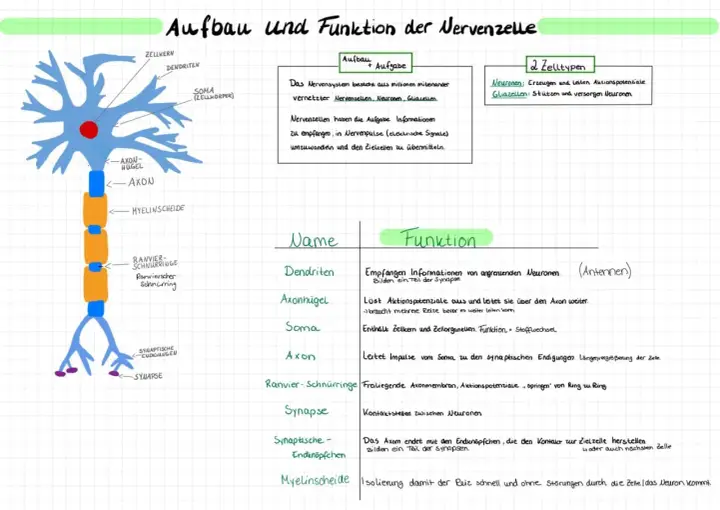 Aufbau und Funktion der Nervenzelle
ZELLKERN
DENDRITEN
SOMA
(ZELLKÖRPER)
AXON-
HÜGEL
AXON
MYELINSCHEIDE
RANVIER-
SCHNÜRRINGE
Ranvierscher
Schnürring
SYNAPTISCHE
ENDIGUNGEN
SYNAPSE
Aufbau
+ Aufgabe
Das Nervensystem besteht aus milionen miteinander
vernetzter Nervenzellen, Neuronen, Gliazellen.
Nervenzellen haben die Aufgabe Informationen
zu empfangen, in Nervenpulse (elektrische Signale)
umzuwandeln und den Zielzellen zu übermitteln.
2 Zelltypen
Neuronen: Erzeugen und leiten Aktionspotenziale
Gliazellen: Stützen und versorgen Neuronen.
Name Funktion
Dendriten Empfangen Informationen von angrenzenden Neuronen (Antennen)
Bilden ein Teil der Synapse
Axonhügel Löst Aktionspotenziale aus und leitet sie über den Axon weiter.
mehrere Reize bevor
Soma Enthält Zellkern und Zellorganellen. Funktion = Stoffwechsel
Axon Leitet Impulse vom Soma zu den synaptischen Endigungen der Zelle
Ranvier-Schnürringe Freiliegende Axonmembran, Aktionspotentiale "springen" von Ring zu Ring
Synapse Kontaktstellen zwischen Neuronen
Synaptische- Das Axon endet mit den Endknöpfchen, die den Kontakt zur Zielzelle herstellen
Endknöpfchen Bilden ein Teil der Synapsen oder auch nächsten Zelle
Myelinscheide Isolierung damit der Reiz schnell und ohne Störungen durch die Zelle/das Neuron kommt.